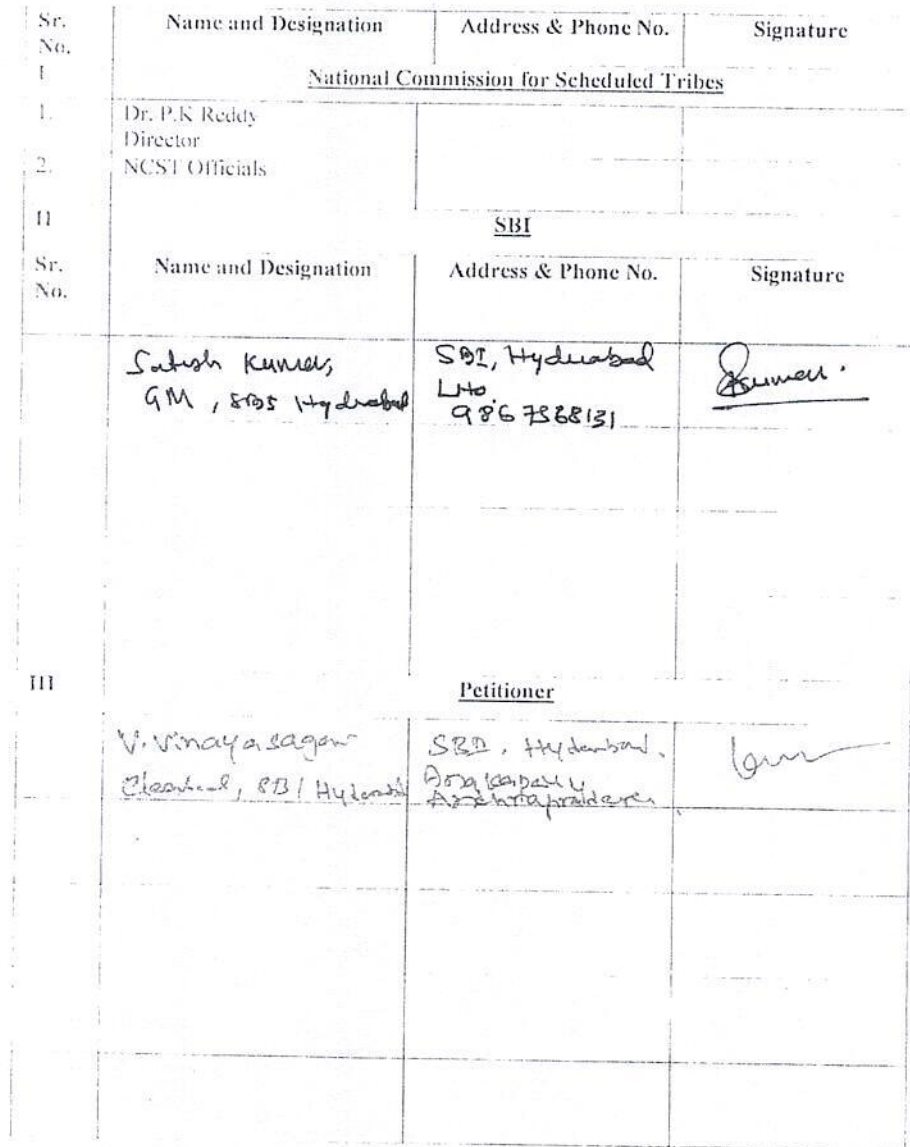 Sr. No. Name and Designation Address & Phone No. Signature
I National Commission for Scheduled Tribes
1. Dr. P.K Reddy
Director
2. NCST Officials
II SBI
Sr. No. Name and Designation Address & Phone No. Signature
Satish Kumar, SBI, Hyderabad
GM, Hyderabad LHO
9867568131
Kumar.
III Petitioner
V. Vinayasagar SBI, Hyderabad.
SBI Hyderabad